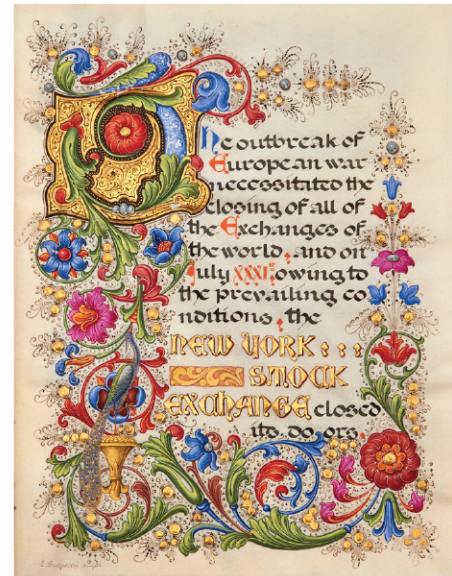 The outbreak of
European war
necessitated the
closing of all of
the Exchanges of
the world, and on
July XXXI owing to
the prevailing co
nditions, the
NEW YORK : : :
STOCK
EXCHANGE closed
its doors